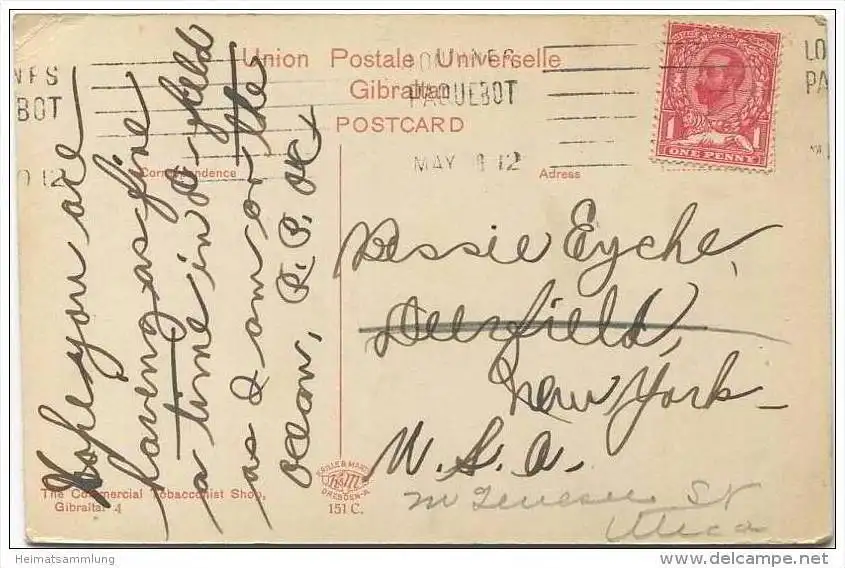 Union Postale Universelle
Gibraltar
POSTCARD
PAQUEBOT
MAY 12
LO
PA
NFS
BOT
0 12
Correspondence
Adress
1 1
ONE PENNY
Hope you are
having as fine
a time in D-field
as I am on the
ocean,
Bessie Eyche,
Deerfield,
New York-
U.S.A.
Genesee St
Utica
The Commercial Tobacconist Shop,
Gibraltar 4
DRESDEN-A
151 C.
Heimatsammlung
www.delcampe.net